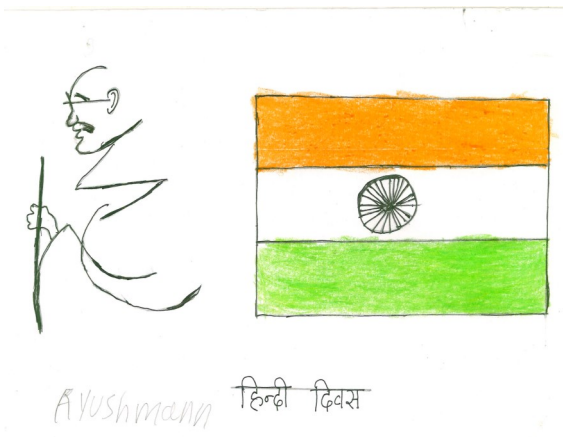 Ayushmann हिन्दी दिवस